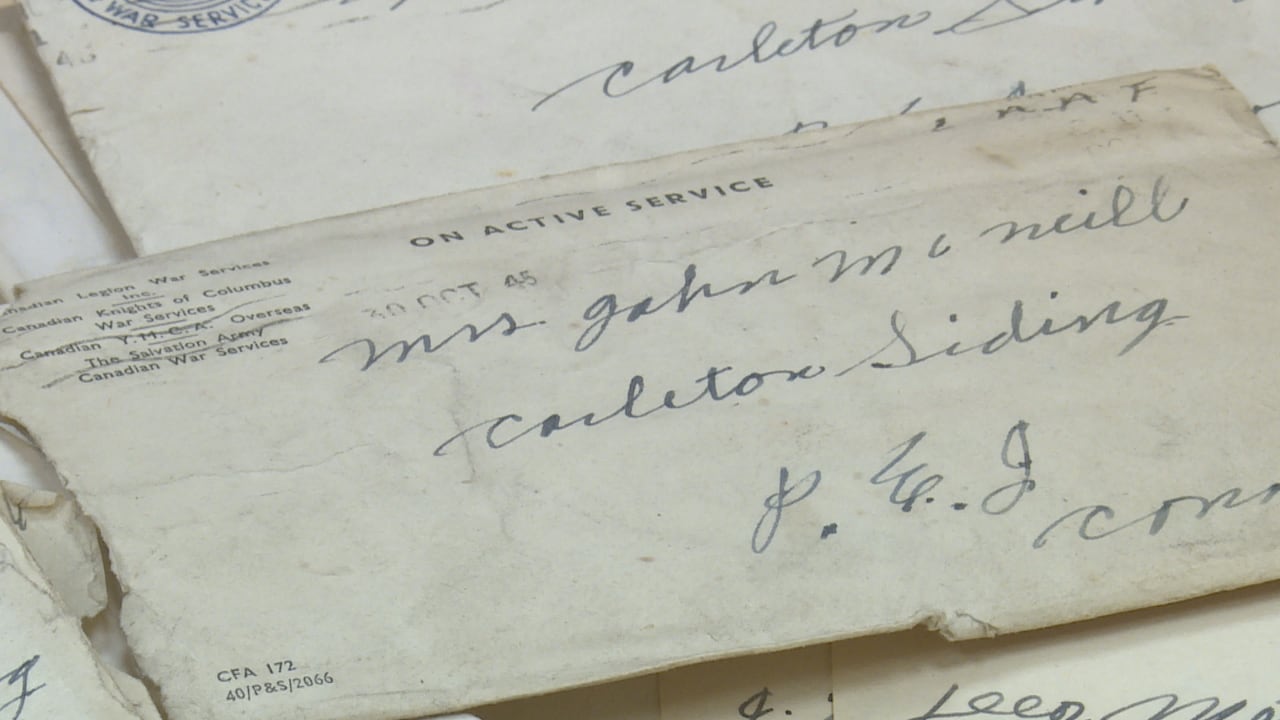 WAR SERVICE
45
Carleton
ON ACTIVE SERVICE
nadian Legion War Services
Inc.
Canadian Knights of Columbus
War Services
Canadian Y.M.C.A. Overseas
The Salvation Army
Canadian War Services
30 OCT 45
Mrs John Mc neill
Carleton Siding
P. E. I
CFA 172
40/P&S/2066